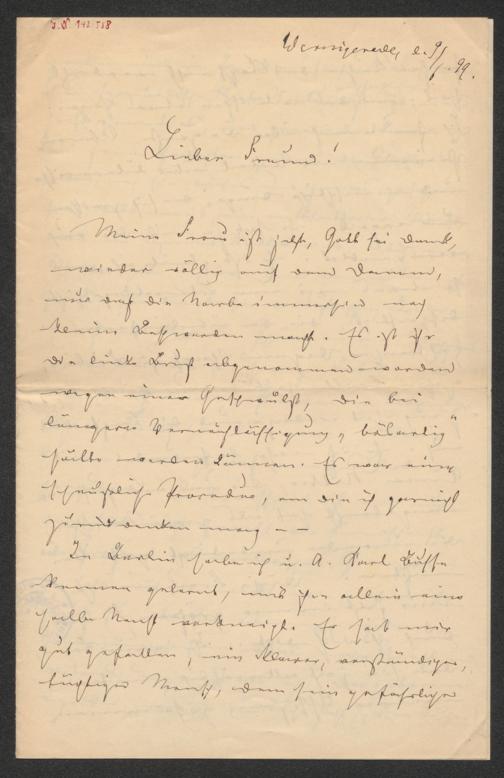 I.N 142.558
Wernigerode, d. 9/ 99.
Lieber Freund!
Meine Frau ist jetzt, Gott sei Dank,
wieder völlig auf dem Damm,
nur daß die Narbe immerhin noch
kleine Beschwerden macht. Es ist ihr
die linke Brust abgenommen worden
wegen einer Geschwulst, die bei
längerer Vernachlässigung „bösartig"
hätte werden können. Es war eine
scheußliche Procedur, an die ich garnicht
zurückdenken mag. –
In Berlin habe ich u. A. Karl Busse
kennen gelernt, und ihm allein eine
halbe Nacht verkneipt. Er hat mir
gut gefallen, ein klarer, verständiger,
tüchtiger Mensch, dem sein gefährlicher